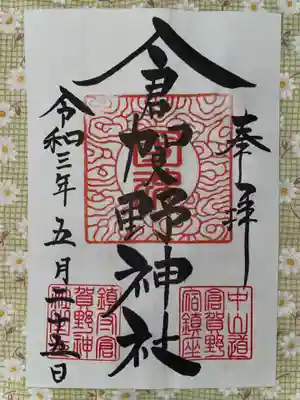 奉拝
中山道
倉賀野
宿鎮座
倉賀野神社
鎮守倉
賀野神
令和三年 五月二十五日